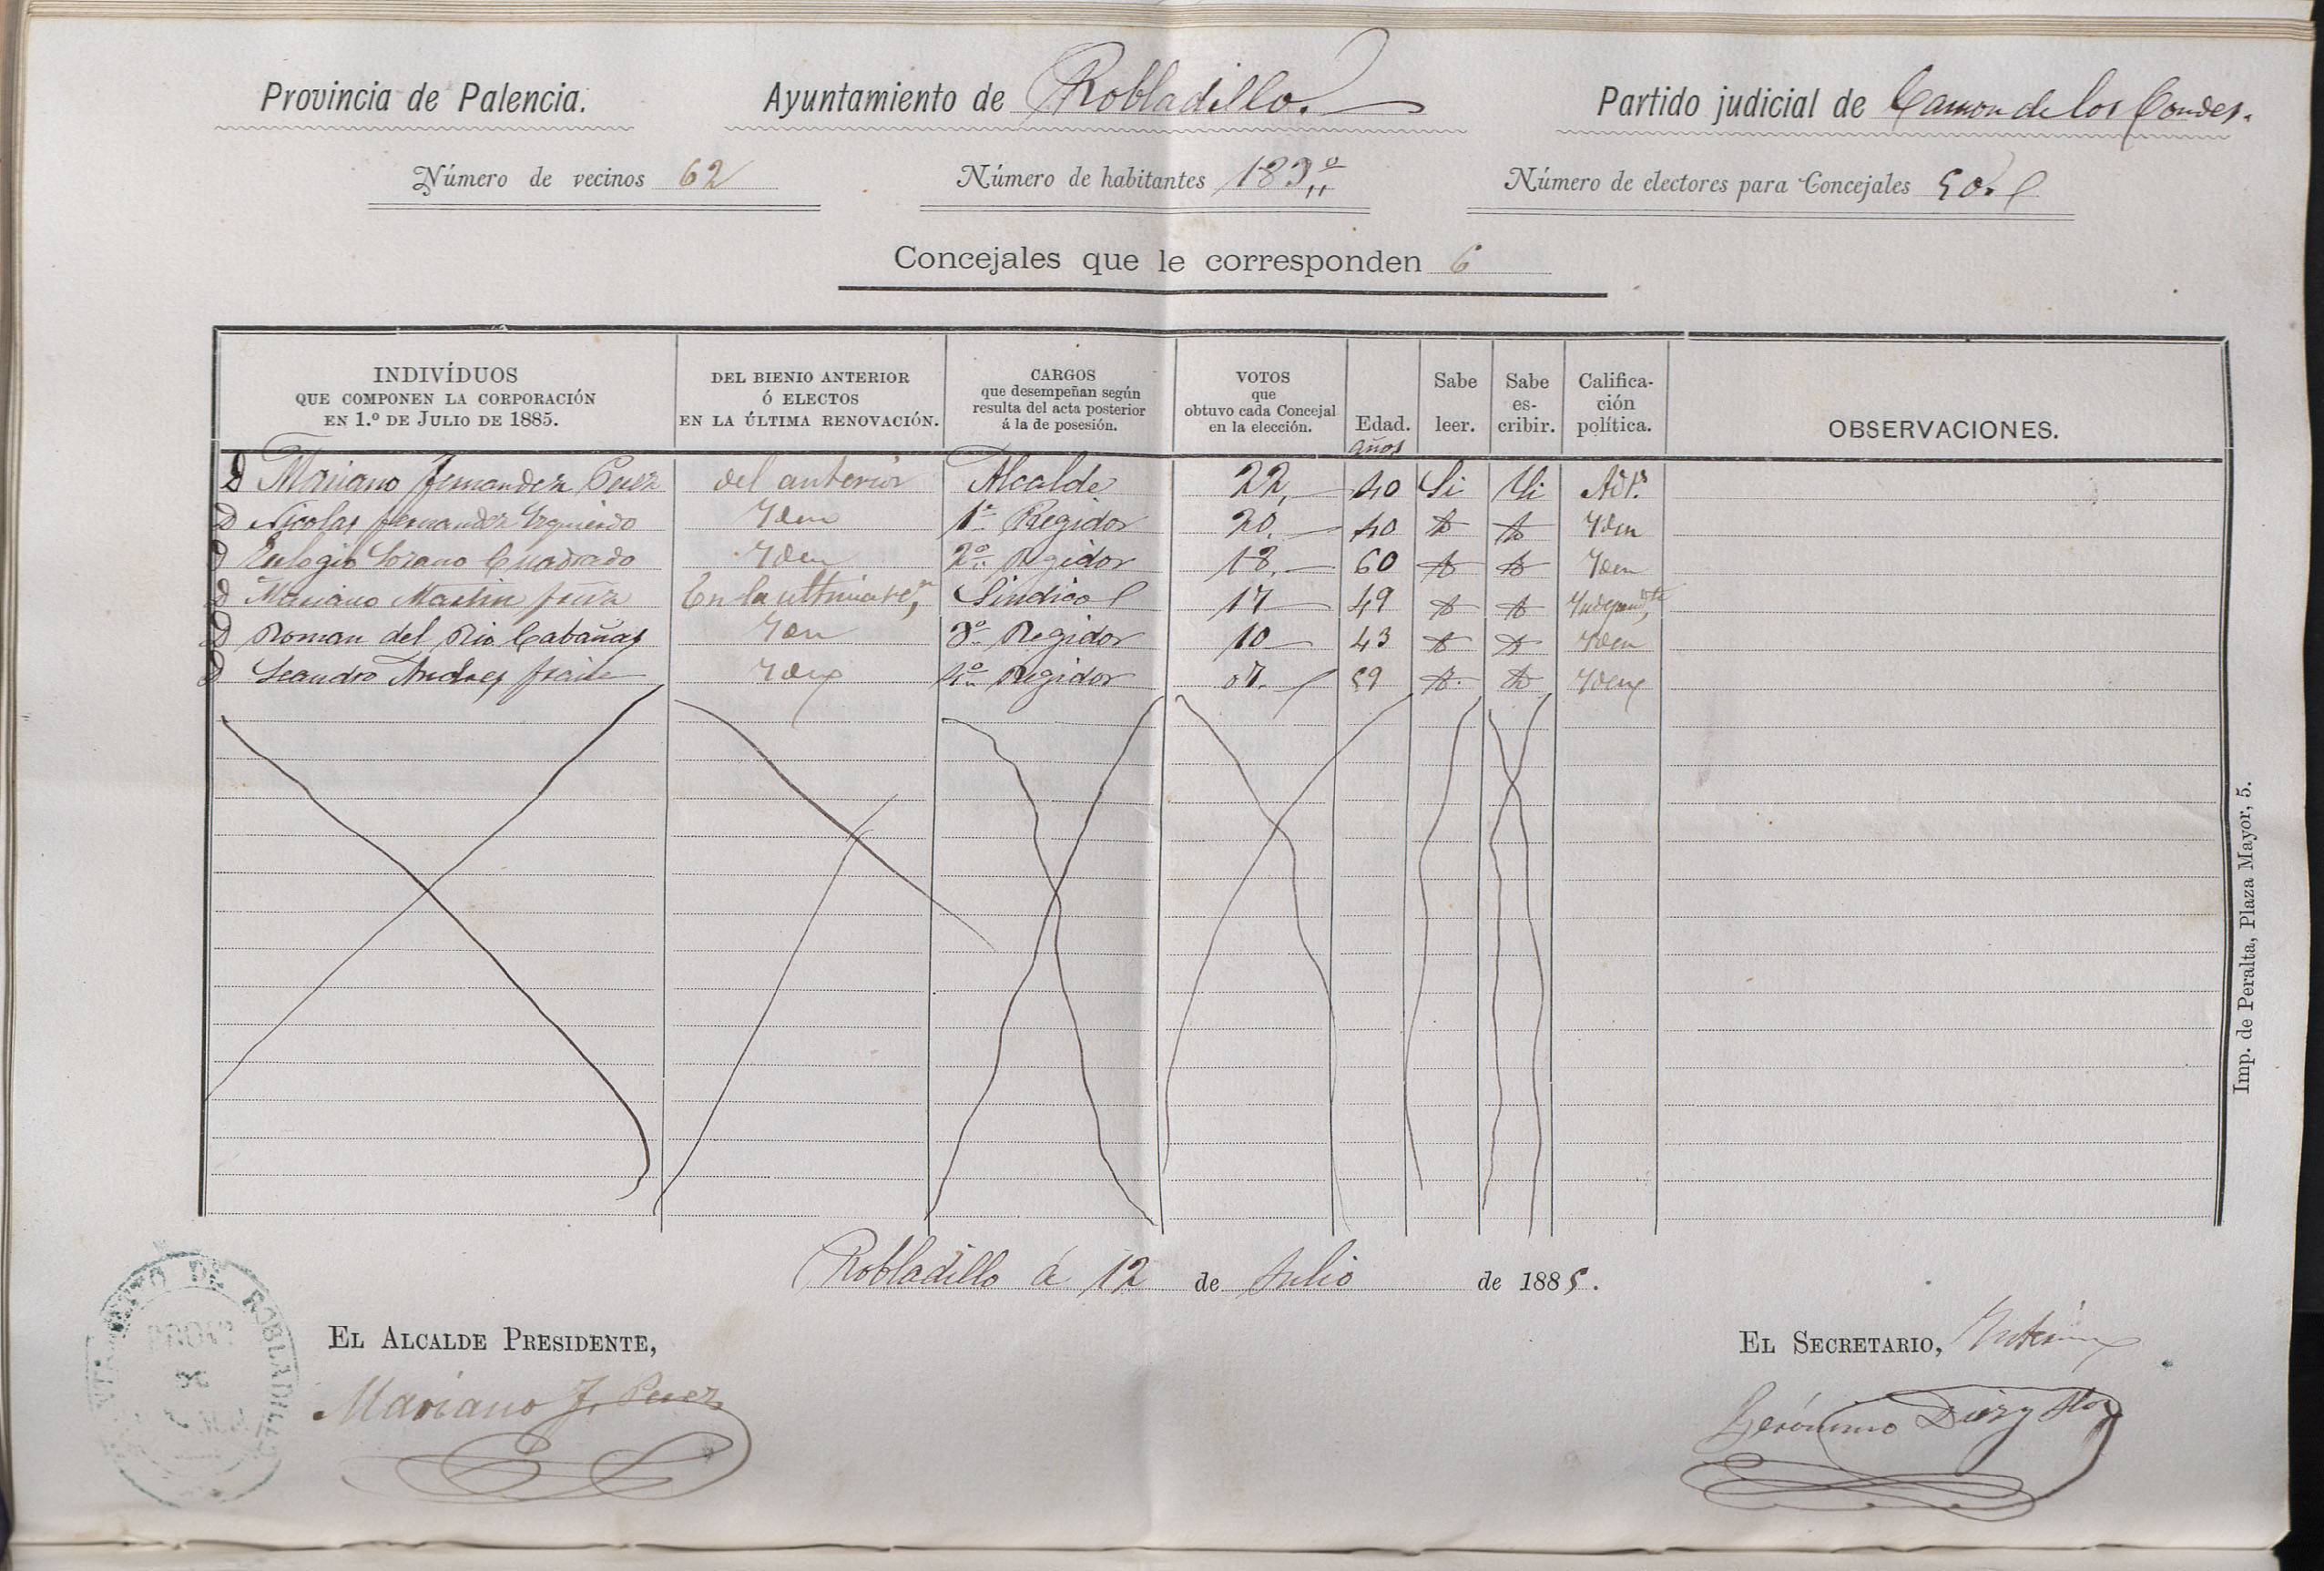 Provincia de Palencia. Ayuntamiento de Robladillo. Partido judicial de Carrion de los Condes.
Número de vecinos 62 Número de habitantes 183 Número de electores para Concejales 50
Concejales que le corresponden 6
INDIVÍDUOS QUE COMPONEN LA CORPORACIÓN EN 1.º DE JULIO DE 1885. DEL BIENIO ANTERIOR Ó ELECTOS EN LA ÚLTIMA RENOVACIÓN. CARGOS que desempeñan según resulta del acta posterior á la de posesión. VOTOS que obtuvo cada Concejal en la elección. Edad. Sabe leer. Sabe es-cribir. Califica-ción política. OBSERVACIONES.
años
D Mariano Fernandez Perez del anterior Alcalde 22, 40 Si Si
D Nicolas Fernandez Izquierdo Yden 1º Regidor 20. 40 Yden
D Eulogio Lozano Cuadrado Yden 2º Regidor 18. 60 Yden
D Mariano Martin En la ultima Sindico 17 49 Yndepend
D Roman del Rio Cabañas Yden 3º Regidor 10 43 Yden
D Leandro Andres Fraile Yden 4º Regidor 07. 59 Yden
Robladillo á 12 de Julio de 1885.
AYUNTAMIENTO DE ROBLADILLO
EL ALCALDE PRESIDENTE, EL SECRETARIO, Interino
Mariano F. Perez Gerónimo Diez y
Imp. de Peralta, Plaza Mayor, 5.